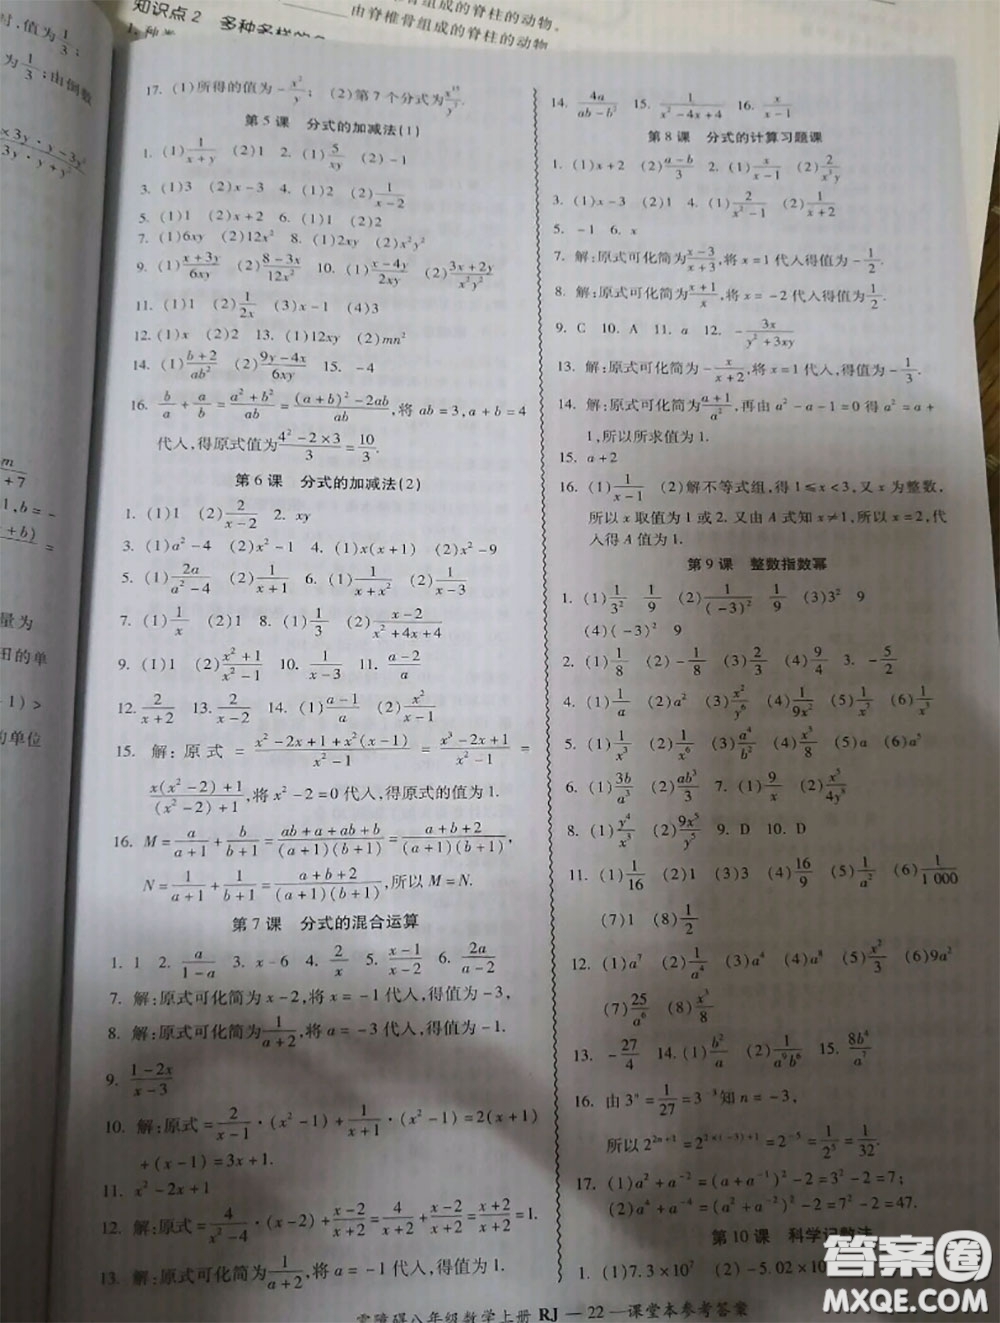 时,值为$\frac{1}{3}$;
为$\frac{1}{3}$;由倒数
知识点2 多种多样的
由脊椎骨组成的脊柱的动物.
由脊椎骨组成的脊柱的动物
17. (1)所得的值为$-\frac{x^2}{y}$; (2)第7个分式为$\frac{x^{15}}{y^7}$.
第5课 分式的加减法(1)
1. (1)$\frac{1}{x+y}$ (2)1 2. (1)$\frac{5}{xy}$ (2)-1
3. (1)3 (2)x-3 4. (1)2 (2)$\frac{1}{x-2}$
5. (1)1 (2)x+2 6. (1)1 (2)2
7. (1)6xy (2)12x² 8. (1)2xy (2)x²y²
9. (1)$\frac{x+3y}{6xy}$ (2)$\frac{8-3x}{12x^2}$ 10. (1)$\frac{x-4y}{2xy}$ (2)$\frac{3x+2y}{x^2y^2}$
11. (1)2 (2)$\frac{1}{2x}$ (3)x-1 (4)3
12. (1)x (2)2 13. (1)12xy (2)mn²
14. (1)$\frac{b+2}{ab^2}$ (2)$\frac{9y-4x}{6xy}$ 15. -4
16. $\frac{b}{a}+\frac{a}{b}=\frac{a^2+b^2}{ab}=\frac{(a+b)^2-2ab}{ab}$,将ab=3,a+b=4
代入,得原式值为$\frac{4^2-2×3}{3}=\frac{10}{3}$.
第6课 分式的加减法(2)
1. (1)1 (2)$\frac{2}{x-2}$ 2. xy
3. (1)a²-4 (2)x²-1 4. (1)x(x+1) (2)x²-9
5. (1)$\frac{2a}{a^2-4}$ (2)$\frac{1}{x+1}$ 6. (1)$\frac{1}{x+2}$ (2)$\frac{1}{x-3}$
7. (1)$\frac{1}{x}$ (2)1 8. (1)$\frac{1}{3}$ (2)$\frac{x}{x^2+4x+4}$
9. (1)1 (2)$\frac{x^2+1}{x^2-1}$ 10. $\frac{1}{x-3}$ 11. $\frac{a-2}{a}$
12. $\frac{2}{x+2}$ 13. $\frac{2}{x-2}$ 14. (1)$\frac{a-1}{a}$ (2)$\frac{x^2}{x-1}$
15. 解:原式=$\frac{x^2-2x+1+x^2(x-1)}{x^2-1}=\frac{x^3-2x+1}{x^2-1}$=
$\frac{x(x^2-2)+1}{(x^2-2)+1}$,将x²-2=0代入,得原式的值为1.
16. M=$\frac{a}{a+1}+\frac{b}{b+1}=\frac{ab+a+ab+b}{(a+1)(b+1)}=\frac{a+b+2}{(a+1)(b+1)}$,
N=$\frac{1}{a+1}+\frac{1}{b+1}=\frac{a+b+2}{(a+1)(b+1)}$,所以M=N.
第7课 分式的混合运算
1. 1 2. $\frac{a}{1-a}$ 3. x-6 4. $\frac{2}{x}$ 5. $\frac{x-1}{x-2}$ 6. $\frac{2a}{a-2}$
7. 解:原式可化简为x-2,将x=-1代入,得值为-3,
8. 解:原式可化简为$\frac{1}{a+2}$,将a=-3代入,得值为-1.
9. $\frac{1-2x}{x-3}$
10. 解:原式=$\frac{2}{x-1}$·(x²-1)+$\frac{1}{x+1}$·(x²-1)=2(x+1)
+(x-1)=3x+1.
11. x²-2x+1
12. 解:原式=$\frac{4}{x^2-4}$·(x-2)+$\frac{x-2}{x+2}=\frac{4}{x+2}+\frac{x-2}{x+2}=\frac{x+2}{x+2}$=1.
13. 解:原式可化简为$\frac{1}{a+2}$,将a=-1代入,得值为1.
14. $\frac{4a}{ab-b^2}$ 15. $\frac{1}{x^2-4x+4}$ 16. $\frac{x}{x-1}$
第8课 分式的计算习题课
1. (1)x+2 (2)$\frac{a-b}{3}$ 2. (1)$\frac{x}{x-1}$ (2)$\frac{2}{x^3y}$
3. (1)x-3 (2)1 4. (1)$\frac{2}{x^2-1}$ (2)$\frac{1}{x+2}$
5. -1 6. x
7. 解:原式可化简为$\frac{x-3}{x+3}$,将x=1代入得值为$-\frac{1}{2}$.
8. 解:原式可化简为$\frac{x+1}{x}$,将x=-2代入得值为$\frac{1}{2}$.
9. C 10. A 11. a 12. $-\frac{3x}{y^2+3xy}$
13. 解:原式可化简为$-\frac{x}{x+2}$,将x=1代入,得值为$-\frac{1}{3}$.
14. 解:原式可化简为$\frac{a+1}{a^2}$,再由a²-a-1=0得a²=a+
1,所以所求值为1.
15. a+2
16. (1)$\frac{1}{x-1}$ (2)解不等式组,得1≤x<3,又x为整数,
所以x取值为1或2.又由A式知x≠1,所以x=2,代
入得A值为1.
第9课 整数指数幂
1. (1)$\frac{1}{3^2}$ $\frac{1}{9}$ (2)$\frac{1}{(-3)^2}$ $\frac{1}{9}$ (3)3² 9
(4)(-3)² 9
2. (1)$\frac{1}{8}$ (2)$-\frac{1}{8}$ (3)$\frac{2}{3}$ (4)$\frac{9}{4}$ 3. $-\frac{5}{2}$
4. (1)$\frac{1}{a}$ (2)a² (3)$\frac{x^2}{y^6}$ (4)$\frac{1}{9x^2}$ (5)$\frac{1}{x}$ (6)$\frac{1}{a}$
5. (1)$\frac{1}{x^3}$ (2)$\frac{1}{x^6}$ (3)$\frac{a^4}{b^2}$ (4)$\frac{8}{x^3}$ (5)1 (6)a²
6. (1)$\frac{3b}{a^3}$ (2)$\frac{ab^3}{3}$ 7. (1)$\frac{9}{x}$ (2)$\frac{x^5}{4y^3}$
8. (1)$\frac{y^4}{x^3}$ (2)$\frac{9x^5}{y^5}$ 9. D 10. D
11. (1)$\frac{1}{16}$ (2)1 (3)3 (4)$\frac{16}{9}$ (5)$\frac{1}{a^2}$ (6)$\frac{1}{1000}$
(7)1 (8)$\frac{1}{2}$
12. (1)a⁷ (2)$\frac{1}{a^4}$ (3)a⁴ (4)a⁸ (5)$\frac{x^2}{3}$ (6)9a²
(7)$\frac{25}{a^6}$ (8)$\frac{x^3}{8}$
13. $-\frac{27}{4}$ 14. (1)$\frac{b^2}{a}$ (2)$\frac{1}{a^9b^6}$ 15. $\frac{8b^4}{a^7}$
16. 由3ⁿ=$\frac{1}{27}$=3⁻³知n=-3,
所以$2^{2n+1}=2^{2×(-3)+1}=2^{-5}=\frac{1}{2^5}=\frac{1}{32}$.
17. (1)a²+a⁻²=(a+a⁻¹)²-2=3²-2=7;
(2)a⁴+a⁻⁴=(a²+a⁻²)²-2=7²-2=47.
第10课 科学记数法
1. (1)7.3×10⁷ (2)-5.02×10
零障碍八年级数学上册 RJ —22—课堂本参考答案
答案圈
MXQE.COM